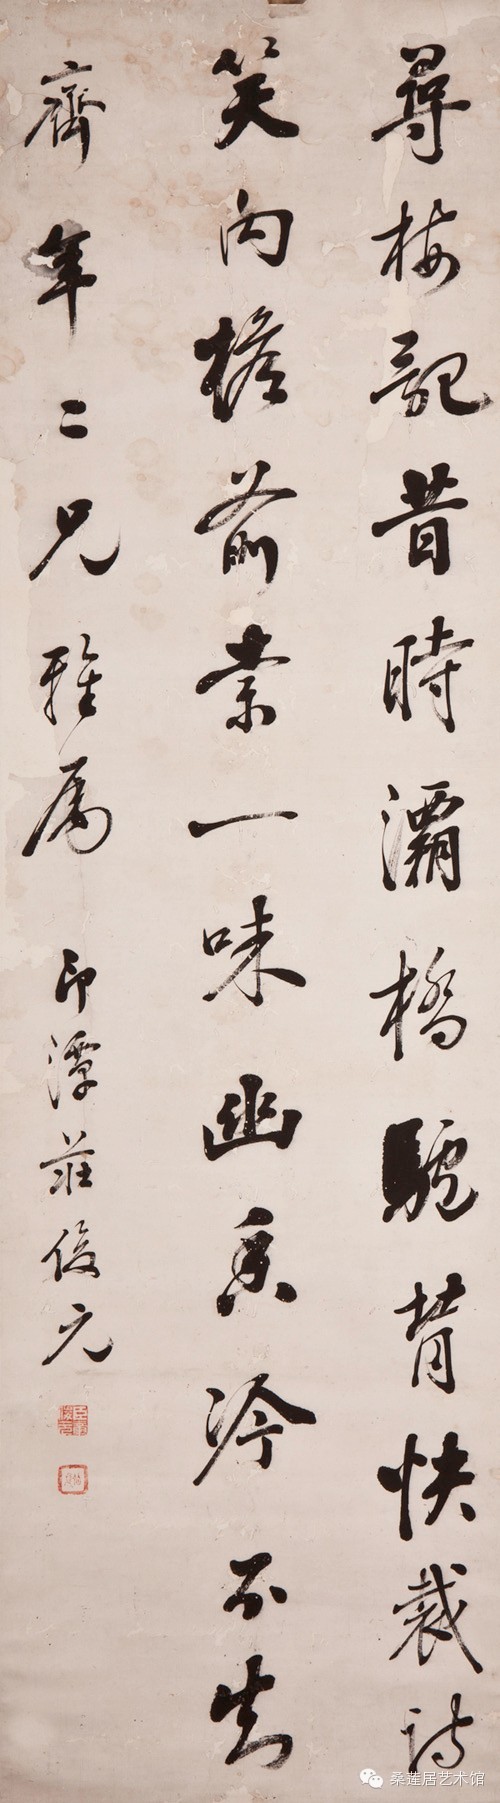 尋梅記昔時灞橋驢背快裁詩
笑內檐前索一味幽香冷不知
齊年二兄雅屬 印潭莊俊元
桑莲居艺术馆